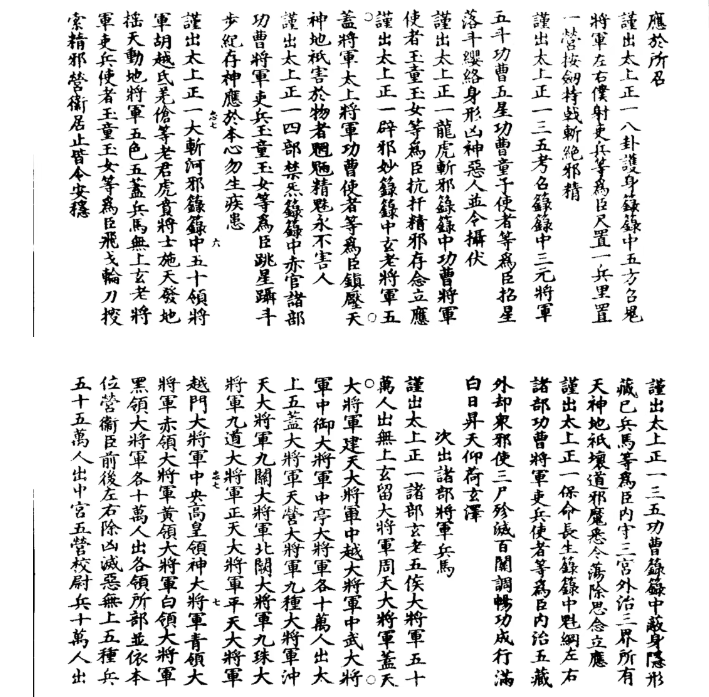 應於所召
謹出太上正一八卦護身籙籙中五方召鬼
將軍左右僕射吏兵等爲臣尺置一兵里置
一營按劒持戟斬絕邪精
謹出太上正一三五考召籙籙中三元將軍
五斗功曹五星功曹童子使者等爲臣招星
落斗纓絡身形凶神惡人並令攝伏
謹出太上正一龍虎斬邪籙籙中功曹將軍
使者玉童玉女等爲臣抗扞精邪存念立應
謹出太上正一辟邪妙籙籙中玄老將軍五
蓋將軍太上將軍功曹使者等爲臣鎮壓天
神地祇害於物者魍魎精魅永不害人
謹出太上正一四部禁炁籙籙中赤官諸部
功曹將軍吏兵玉童玉女等爲臣跳星躡斗
步紀存神應於本心勿生疾患
謹出太上正一大斬河邪籙籙中五十領將
軍胡越氐羌傖等老君虎賁將士施天發地
揺天動地將軍五色五蓋兵馬無上玄老將
軍吏兵使者玉童玉女等爲臣飛戈輪刀搜
索精邪營衞居止皆令安穩
六
謹出太上正一三五功曹籙籙中蔽身隱形
藏已兵馬等爲臣内守三宮外治三界所有
天神地祇壞道邪魔悉令蕩除思念立應
謹出太上正一保命長生籙籙中魁綱左右
諸部功曹將軍吏兵使者等爲臣内治五藏
外却衆邪使三尸殄滅百關調暢功成行滿
白日昇天仰荷玄澤
次出諸部將軍兵馬
謹出太上正一諸部玄老五侯大將軍五十
萬人出無上玄留大將軍周天大將軍蓋天
大將軍建天大將軍中越大將軍中武大將
軍中御大將軍中亭大將軍各十萬人出太
上五蓋大將軍天營大將軍九種大將軍沖
天大將軍九關大將軍北闕大將軍九珠大
將軍九道大將軍正天大將軍平天大將軍
越門大將軍中央高皇領神大將軍青領大
將軍赤領大將軍黃領大將軍白領大將軍
黑領大將軍各十萬人出各領所部並依本
位營衞臣前後左右除凶滅惡無上五種兵
五十五萬人出中宮五營校尉兵十萬人出
七